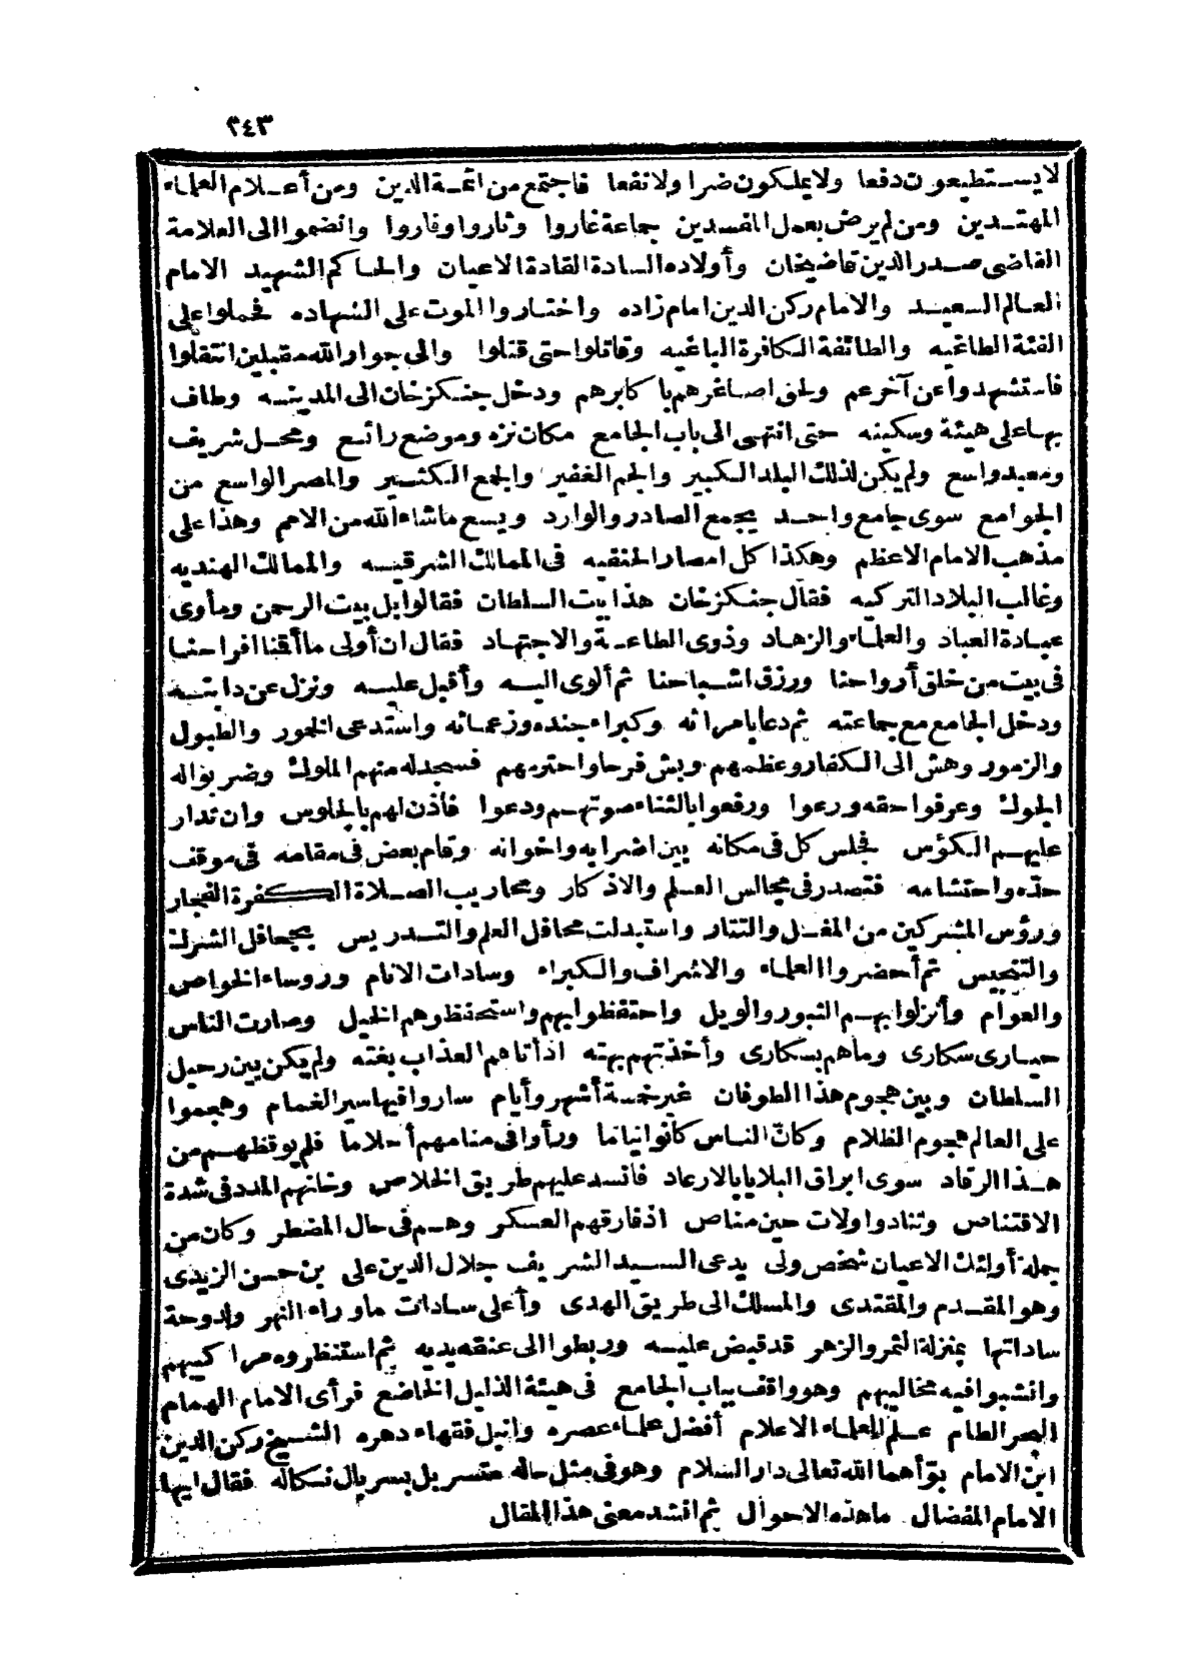 ٢٤٣
لا يستطيعون دفعا ولا يملكون ضرا ولا نفعا فاجتمع من أئمة الدين ومن أعلام العلماء
المهتدين ومن لم يرض بعمل المفسدين جماعة غاروا وثاروا وفاروا وانضموا الى العلامة
القاضى صدر الدين قاضيخان وأولاده السادة القادة الاعيان والحاكم الشهيد الامام
العالم السعيد والامام ركن الدين امام زاده واختاروا الموت على الشهاده فحملوا على
الفئة الطاغيه والطائفة الكافرة الباغيه وقاتلوا حتى قتلوا والى جوار الله مقبلين انتقلوا
فاستشهدوا عن آخرهم ولحق اصاغرهم باكابرهم ودخل جنكزخان الى المدينه وطاف
بها على هيئة وسكينه حتى انتهى الى باب الجامع مكان نزه وموضع رائع ومحل شريف
ومعبد واسع ولم يكن لذلك البلد الكبير والجم الغفير والجمع الكثير والمصر الواسع من
الجوامع سوى جامع واحد يجمع الصادر والوارد ويسع ما شاء الله من الامم وهذا على
مذهب الامام الاعظم وهكذا كل امصار الحنفيه فى الممالك الشرقيه والممالك الهنديه
وغالب البلاد التركيه فقال جنكزخان هذا بيت السلطان فقالوا بل بيت الرحمن ومأوى
عبادة العباد والعلماء والزهاد وذوى الطاعة والاجتهاد فقال ان أولى ما أقمنا افراحنا
فى بيت من خلق أرواحنا ورزق اشباحنا ثم ألوى اليه وأقبل عليه ونزل عن دابته
ودخل الجامع مع جماعته ثم دعا بامرائه وكبراء جنده وزعمائه واستدعى الخمور والطبول
والزمور وهش الى الكفار وعظمهم وبش فرحا واحترمهم فسجد له منهم الملوك وضربوا له
الجوك وعرفوا حقه ورعوا ورفعوا بالثناء صوتهم ودعوا فأذن لهم بالجلوس وان تدار
عليهم الكؤس فجلس كل فى مكانه بين اضرابه واخوانه وقام بعض فى مقامه فى موقف
حده واحتشامه فتصدر فى مجالس العلم والاذكار ومحاريب الصلاة الكفرة الفجار
ورؤس المشركين من المغل والتتار واستبدلت محافل العلم والتدريس بمحافل الشرك
والتنجيس ثم أحضروا العلماء والاشراف والكبراء وسادات الانام وروساء الخواص
والعوام وأنزلوا بهم الثبور والويل واحتفظوا بهم واستحفظوهم الخيل وصارت الناس
حيارى سكارى وما هم بسكارى وأخذتهم بهته اذ أتاهم العذاب بغته ولم يكن بين رحيل
السلطان وبين هجوم هذا الطوفان غير خمسة أشهر وأيام ساروا فيها سير الغمام وهجموا
على العالم هجوم الظلام وكان الناس كانوا نياما ورأوا فى منامهم أحلاما فلم يوقظهم من
هذا الرقاد سوى ابراق البلايا بالارعاد فانسد عليهم طريق الخلاص وخانهم المدد فى شدة
الاقتناص وتنادوا ولات حين مناص اذ فارقهم العسكر وهم فى حال المضطر وكان من
جملة أولئك الاعيان شخص ولى يدعى السيد الشريف جلال الدين على بن حسن الزيدى
وهو المقدم والمقتدى والمسلك الى طريق الهدى وأعلى سادات ماوراء النهر ولدوحة
ساداتها بمنزلة الثمر والزهر قد قبض عليه وربطوا الى عنقه يديه ثم استنظروه مراكبهم
وانشبوا فيه مخالبهم وهو واقف بباب الجامع فى هيئة الذليل الخاضع فرأى الامام الهمام
البحر الطام علم العلماء الاعلام أفضل علماء عصره وانبل فقهاء دهره الشيخ ركن الدين
ابن الامام بوّأهما الله تعالى دار السلام وهو فى مثل حاله متسربل بسربال نكاله فقال ايها
الامام المفضال ما هذه الاحوال ثم انشد معنى هذا المقال